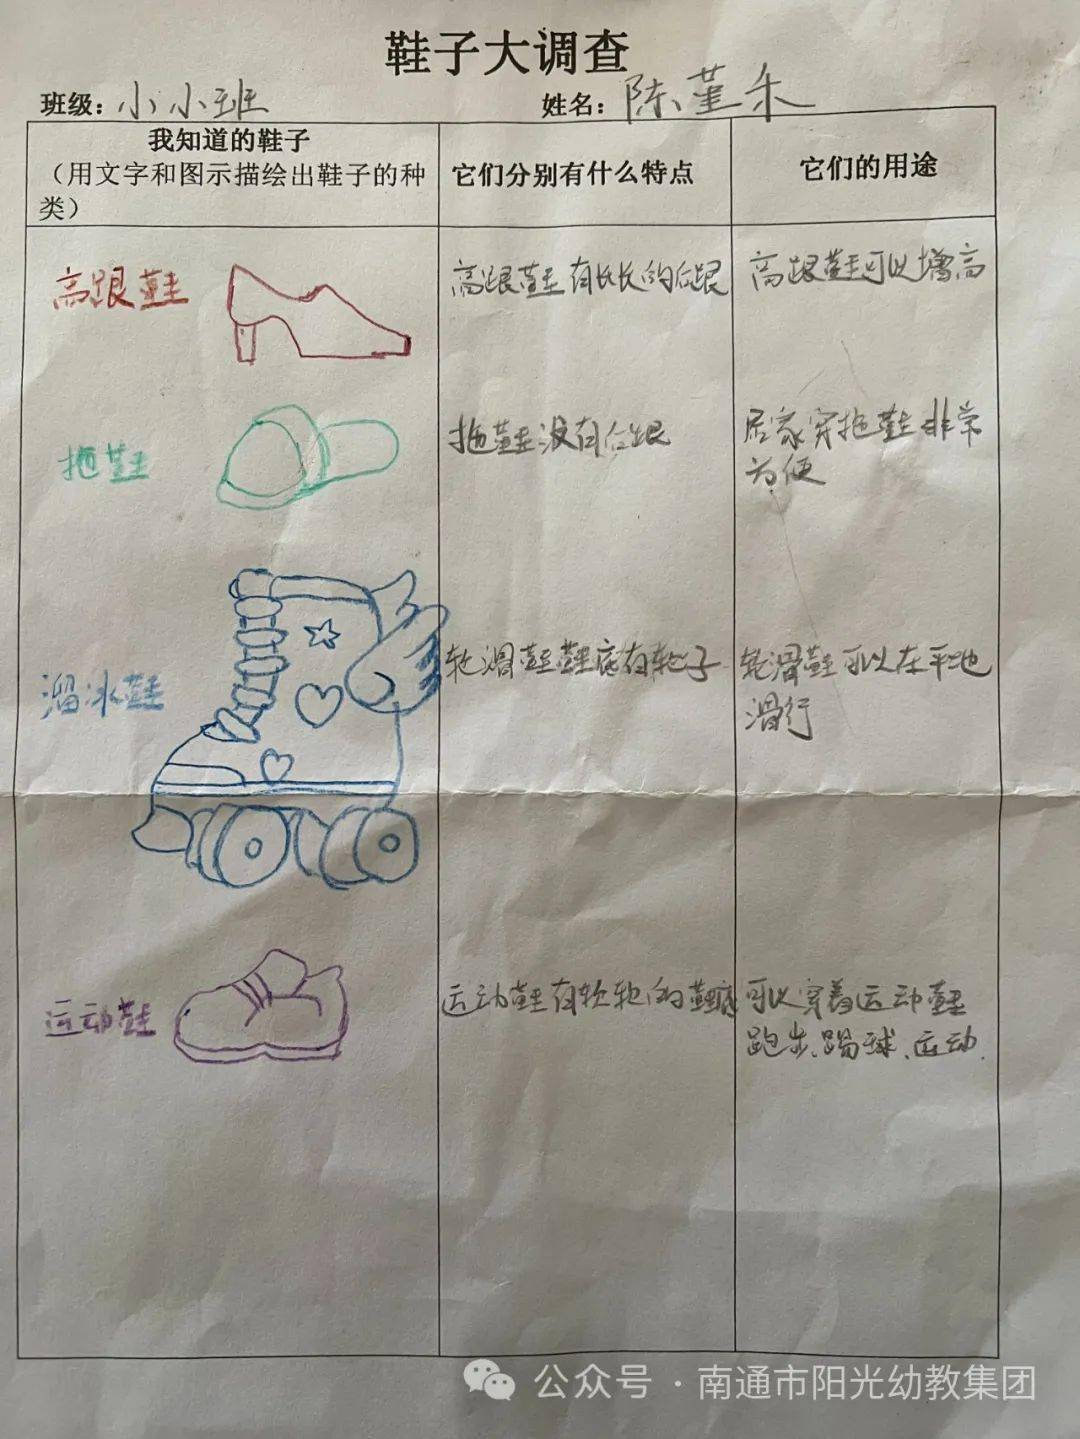 鞋子大调查
班级：小小班 姓名：陈堇禾
我知道的鞋子
（用文字和图示描绘出鞋子的种
类）
它们分别有什么特点
它们的用途
高跟鞋
高跟鞋有长长的后跟
高跟鞋可以增高
拖鞋
拖鞋没有后跟
居家穿拖鞋非常
方便
溜冰鞋
轮滑鞋鞋底有轮子
轮滑鞋可以在平地
滑行
运动鞋
运动鞋有软软的鞋底
可以穿着运动鞋
跑步、踢球、运动.
公众号·南通市阳光幼教集团